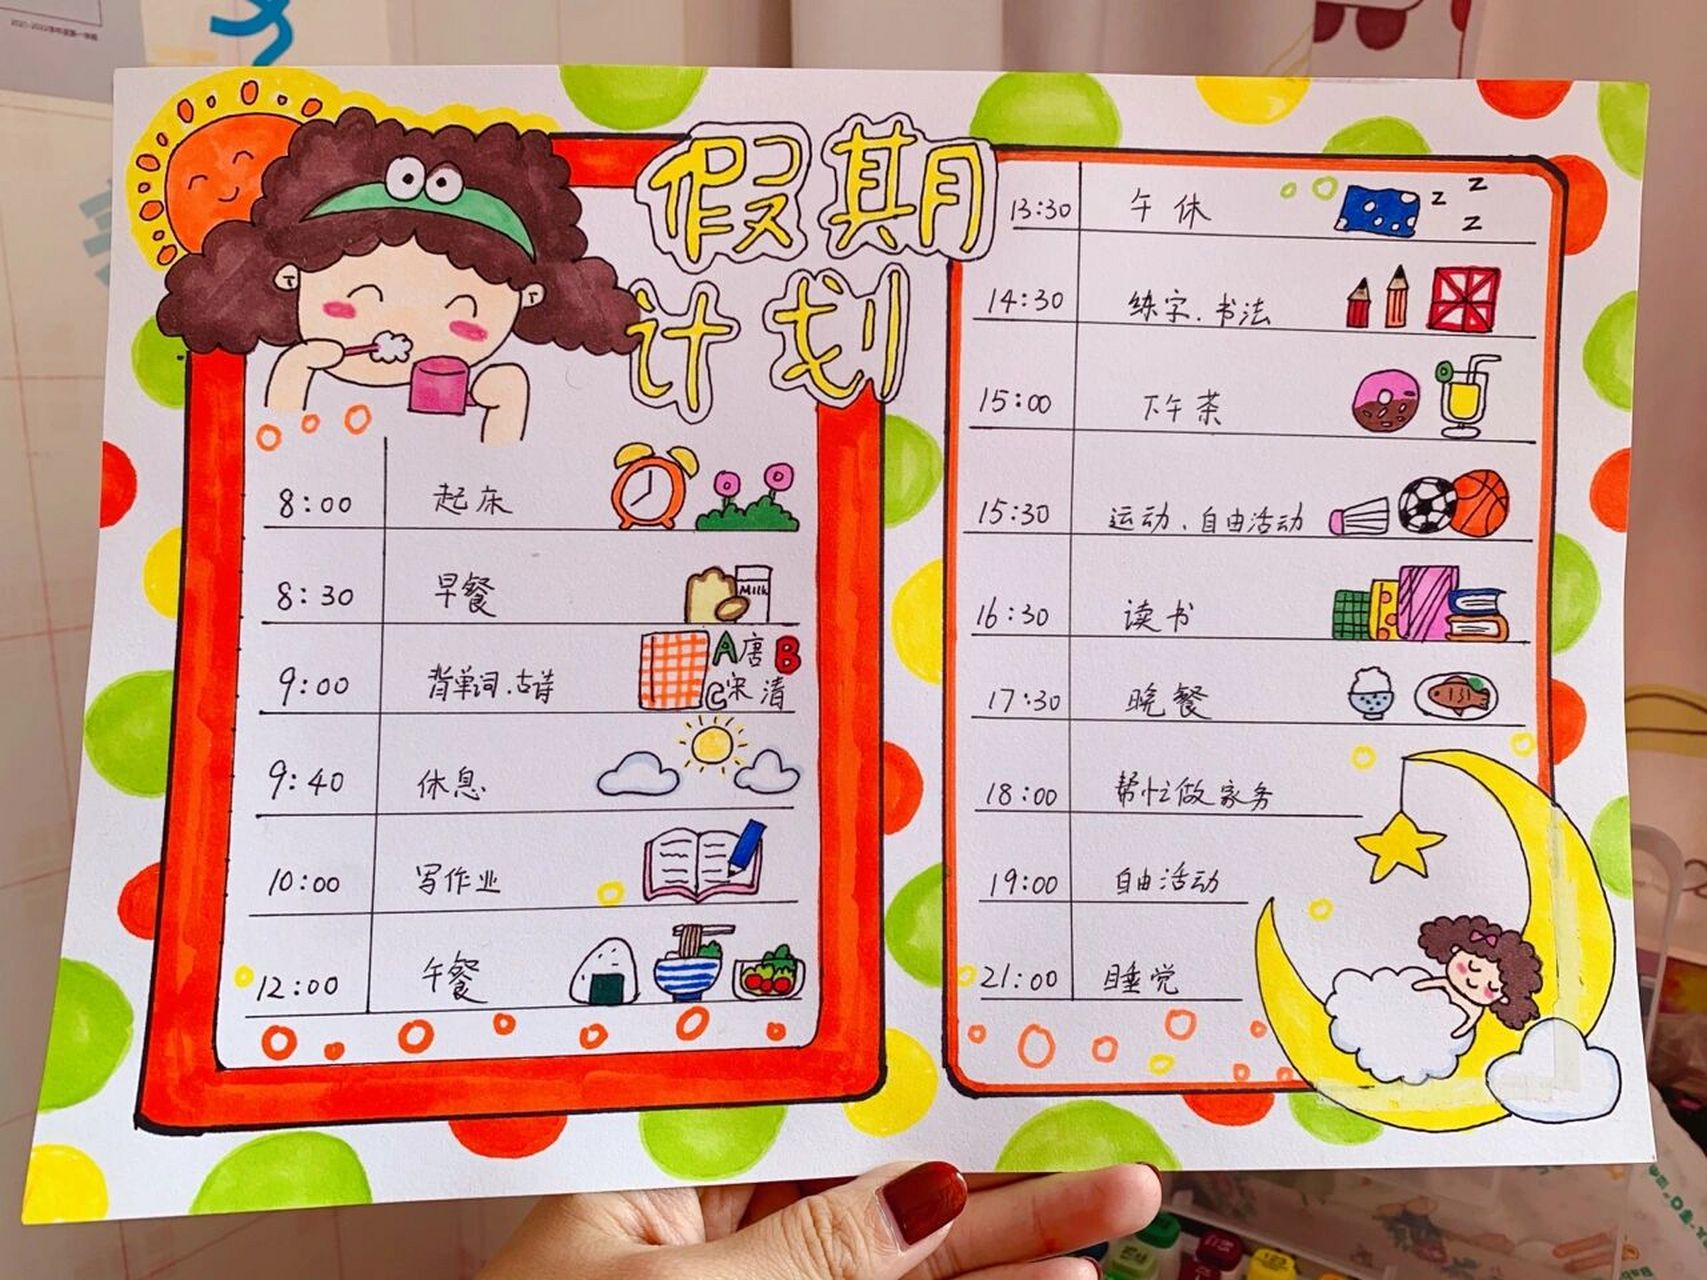 假期
计划
8:00 起床
8:30 早餐
Milk
9:00 背单词.古诗
A唐B
C宋清
9:40 休息
10:00 写作业
12:00 午餐
13:30 午休
z z
z
14:30 练字.书法
15:00 下午茶
15:30 运动、自由活动
16:30 读书
17:30 晚餐
18:00 帮忙做家务
19:00 自由活动
21:00 睡觉